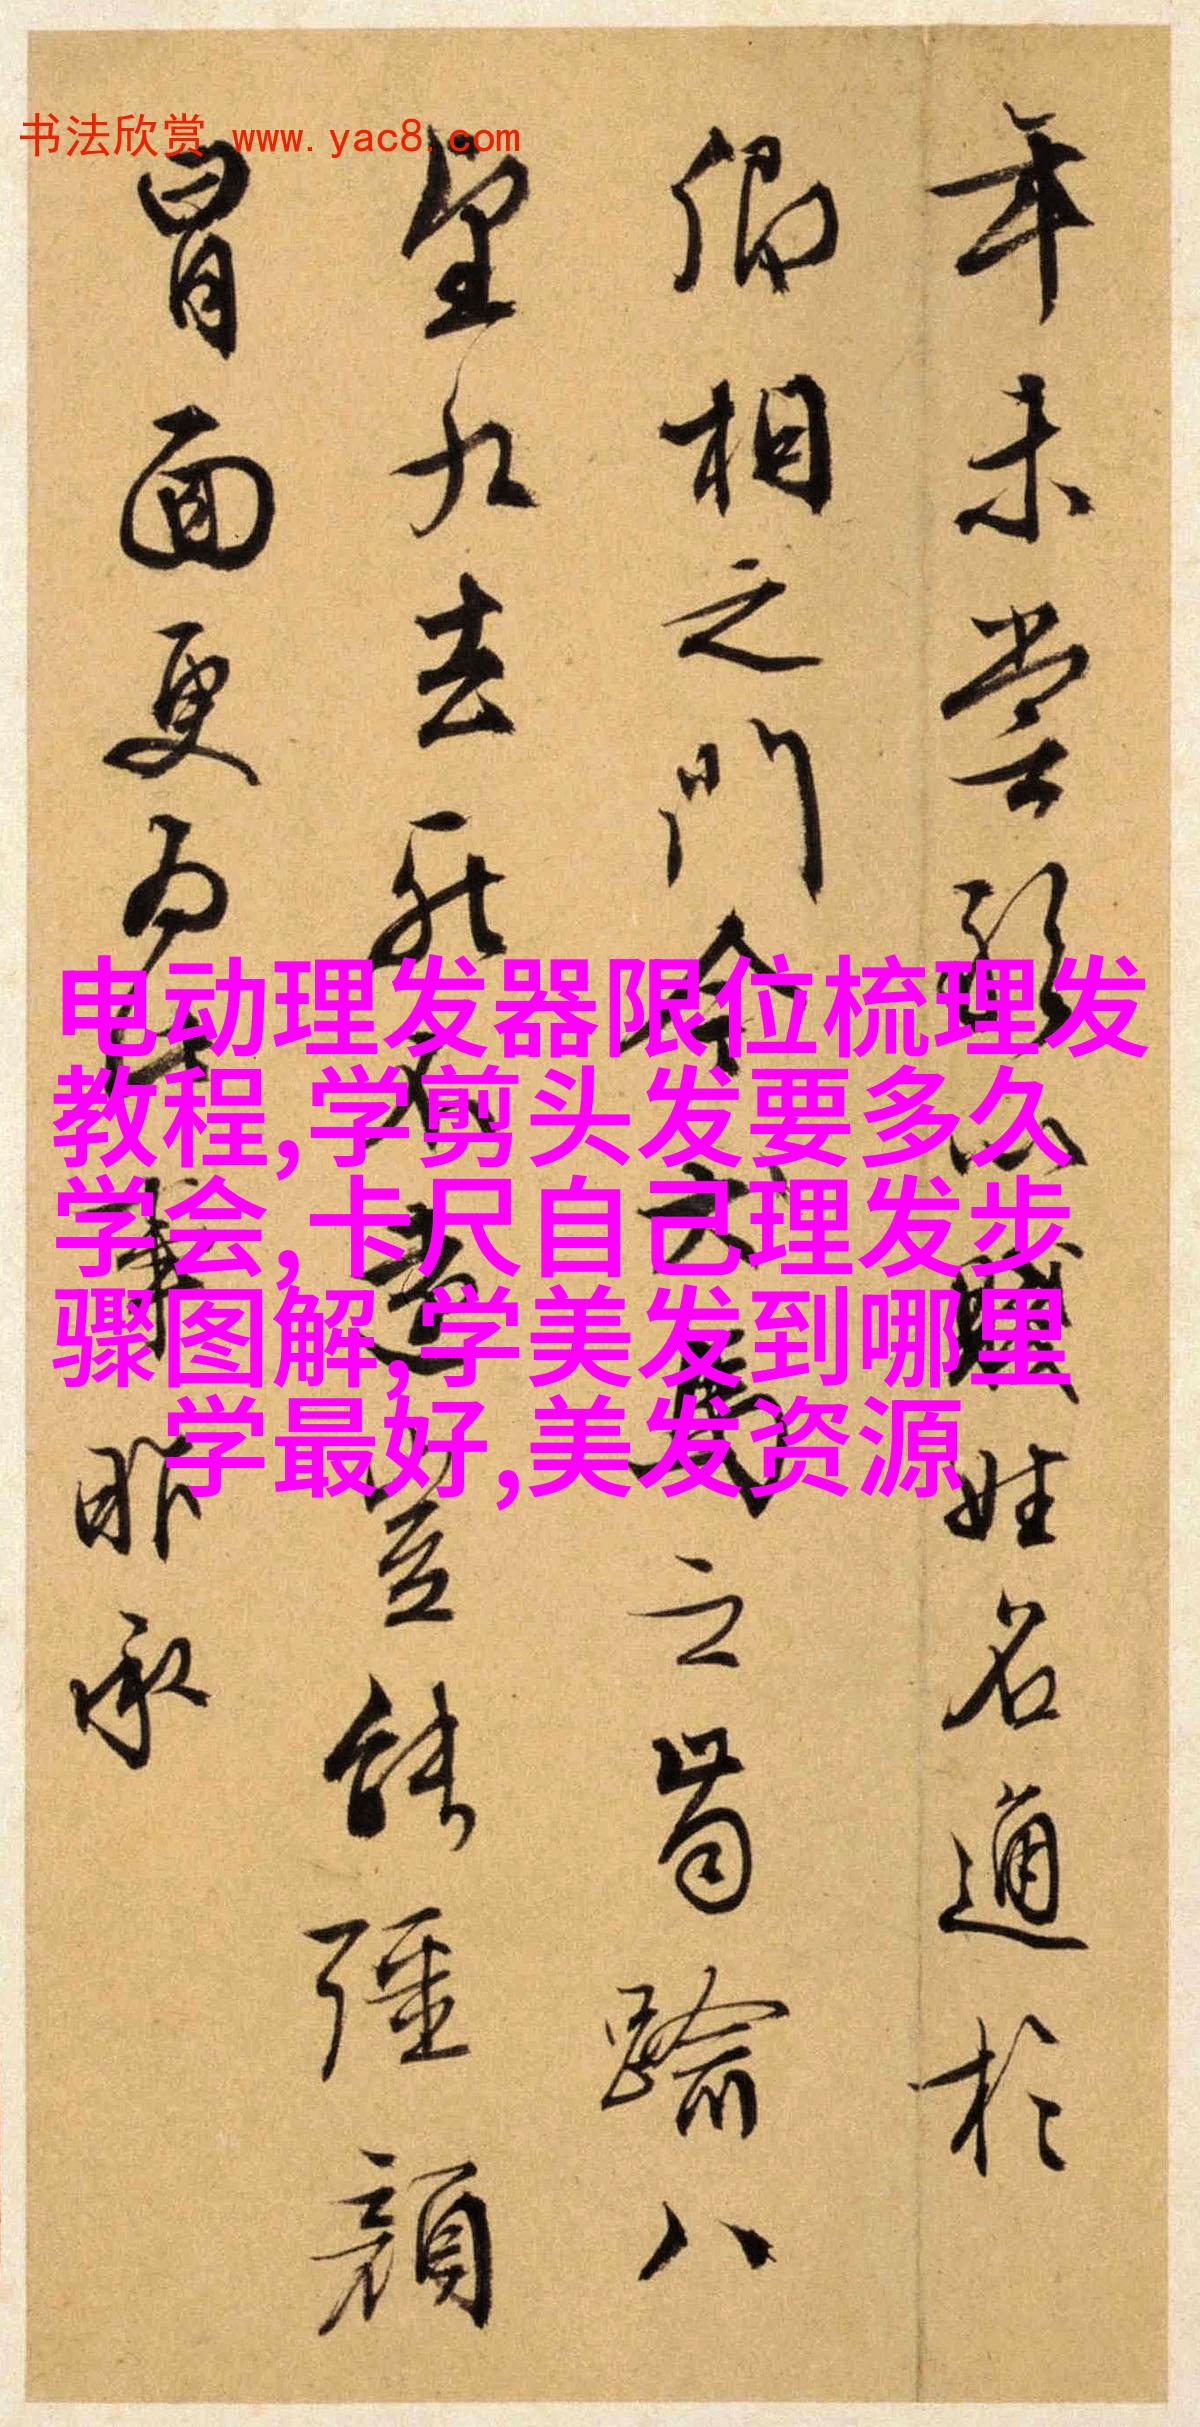 书法欣赏 www.yac8.com
年未尝敢以职姓名通於
卿相之門今
之胄踰八
望九去死不遠豈能强顔
冒面更
昨承
电动理发器限位梳理发
教程,学剪头发要多久
学会,卡尺自己理发步
骤图解,学美发到哪里
学最好,美发资源